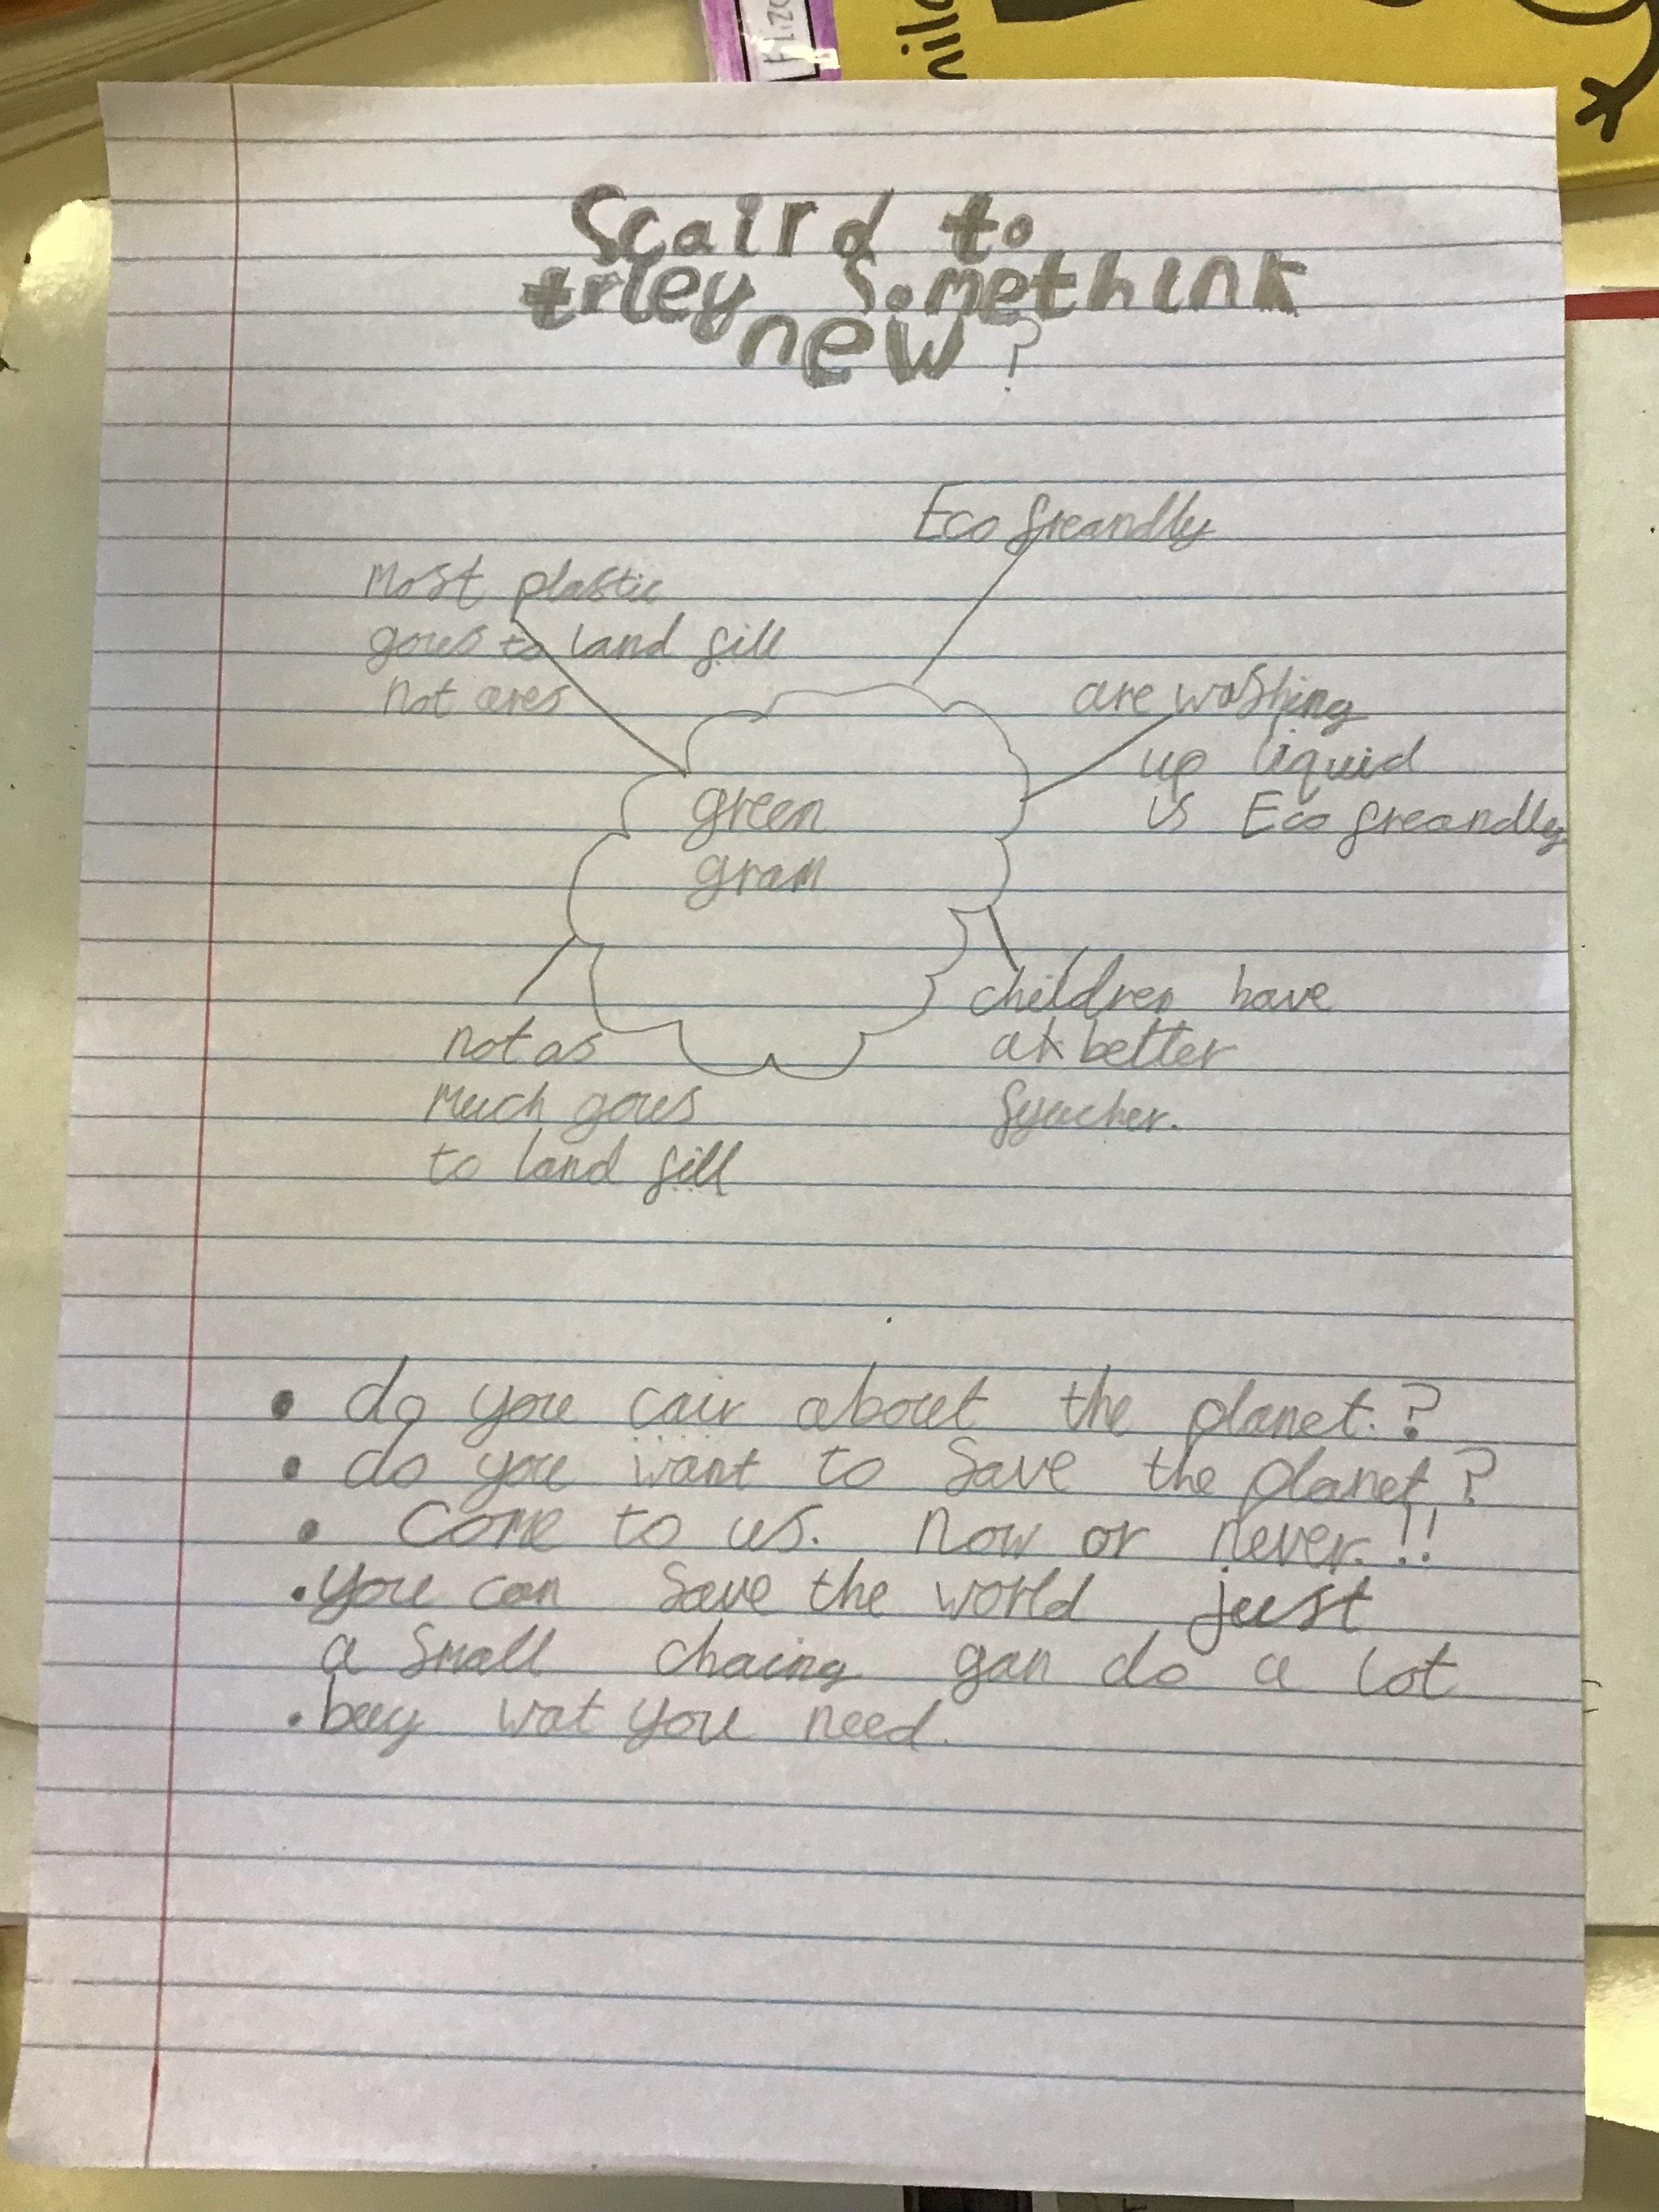 Scaird to
triey Somethink
new?
Eco freandly
Most plastic
gous to land fill
not ares
are washing
up liquid
is Eco freandly
green
gram
children have
a better
fyucher.
not as
much gous
to land fill
• do you cair about the planet.?
• do you want to save the planet?
• Come to us. now or never.!!
• you can save the world just
a small chaing gan do a lot
• buy wat you need.